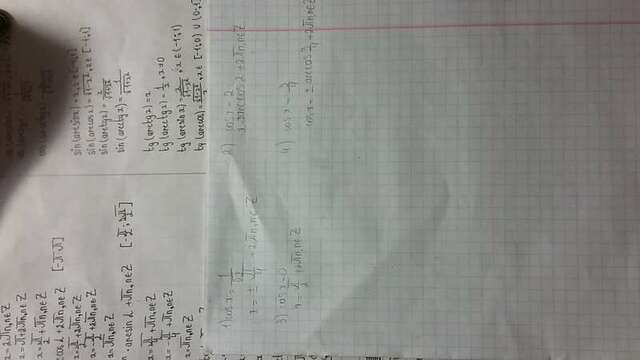 x = 2πn, n∈Z
x = π + 2πn, n∈Z
x = π/2 + πn, n∈Z
cos α + 2πn, n∈Z [-π; π]
x = π/2 + 2πn, n∈Z
x = -π/2 + 2πn, n∈Z
x = πn, n∈Z
· arcsin α + πn, n∈Z
x = π/4 + πn, n∈Z
x = -π/4 + πn, n∈Z
x = πn, n∈Z
sin(arcsin x) = x, x∈[-1;1]
sin(arccos x) = √1-x², x∈[-1;1]
sin(arctg x) = x/√1+x²
sin(arcctg x) = 1/√1+x²
tg(arctg x) = x
tg(arcctg x) = 1/x, x≠0
tg(arcsin x) = x/√1-x², x∈(-1;1)
tg(arccos) = √1-x²/x, x∈[-1;0) ∪ (0;
1) cos x = 1/√2
x = ± π/4 + 2πn, n∈Z
2) cos x = 2
x = arccos 2 + 2πn, n∈Z
3) cos x = 0
x = π/2 + 2πn, n∈Z
4) cos x = 3/4
cos x = ± arccos 3/4 + 2πn, n∈Z